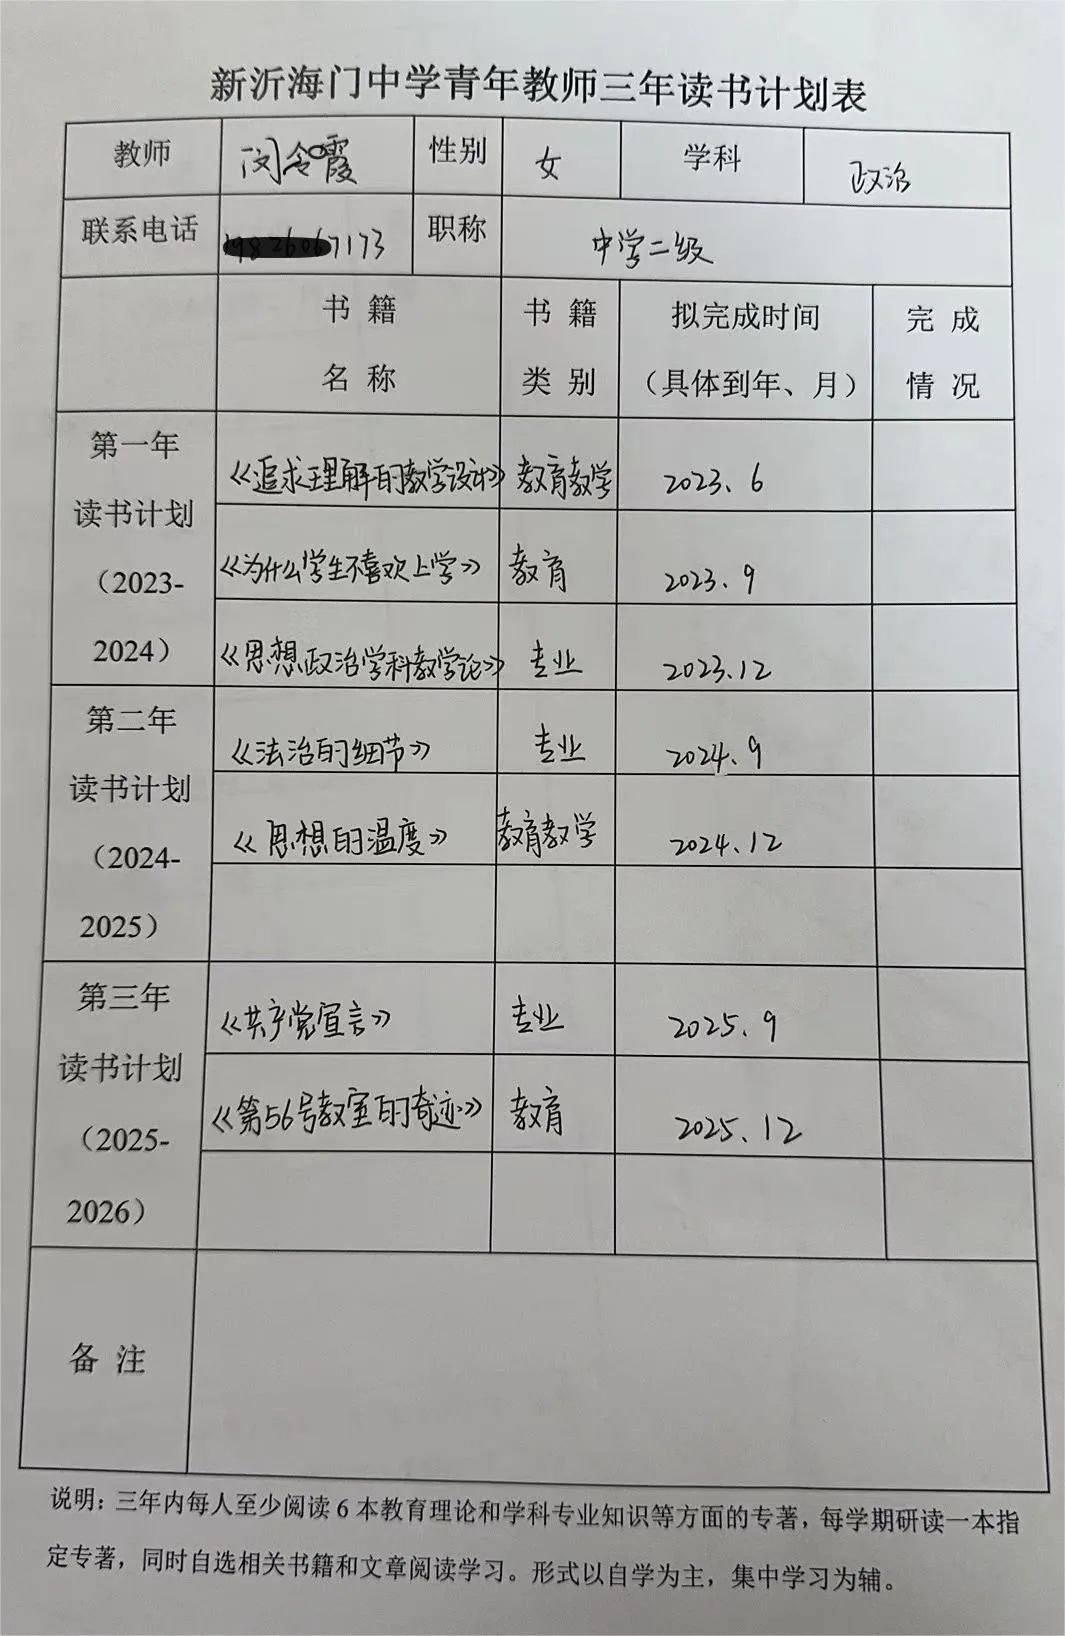 新沂海门中学青年教师三年读书计划表
教师 闵令霞 性别 女 学科 政治
联系电话 7173 职称 中学二级
书籍名称 书籍类别 拟完成时间（具体到年、月） 完成情况
第一年读书计划（2023-2024）
《追求理解的教学设计》 教育教学 2023.6
《为什么学生不喜欢上学》 教育 2023.9
《思想政治学科教学论》 专业 2023.12
第二年读书计划（2024-2025）
《法治的细节》 专业 2024.9
《思想的温度》 教育教学 2024.12
第三年读书计划（2025-2026）
《共产党宣言》 专业 2025.9
《第56号教室的奇迹》 教育 2025.12
备注
说明：三年内每人至少阅读6本教育理论和学科专业知识等方面的专著，每学期研读一本指
定专著，同时自选相关书籍和文章阅读学习。形式以自学为主，集中学习为辅。